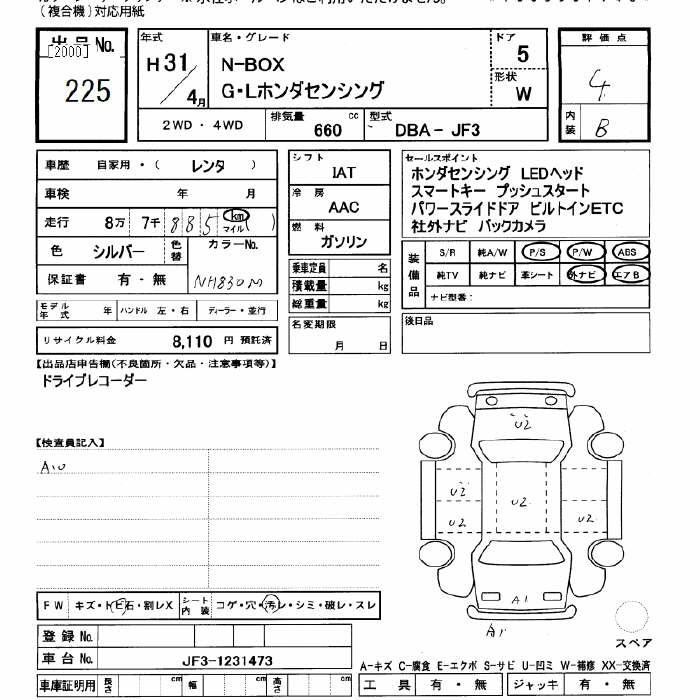 (複合機)対応用紙
出品No.
[2000]
225
年式
H31/4月
車名・グレード
N-BOX
G・Lホンダセンシング
ドア
5
形状
W
評価点
4
内装
B
2WD・4WD
排気量 660 cc
型式 DBA-JF3
車歴 自家用・( レンタ )
車検 年 月
走行 8万 7千 885 km マイル ( )
色 シルバー 色替
カラーNo.
NH830M
保証書 有・無
モデル年式 年 ハンドル 左・右 ディーラー・並行
リサイクル料金 8,110 円 預託済
シフト
IAT
冷房
AAC
燃料
ガソリン
乗車定員 名
積載量 kg
総重量 kg
名変期限
月 日
セールスポイント
ホンダセンシング LEDヘッド
スマートキー プッシュスタート
パワースライドドア ビルトインETC
社外ナビ バックカメラ
装備品
S/R 純A/W P/S P/W ABS
純TV 純ナビ 革シート 外ナビ エアB
ナビ型番:
後日品
【出品店申告欄(不良箇所・欠品・注意事項等)】
ドライブレコーダー
【検査員記入】
U2
U2
U2
U2
U2
A1
A1
スペア
FW キズ・トビ石・割レX
シート内装 コゲ・穴・汚レ・シミ・破レ・スレ
登録No.
車台No. JF3-1231473
車庫証明用 長さ cm 幅 cm 高さ cm
A-キズ C-腐食 E-エクボ S-サビ U-凹ミ W-補修 XX-交換済
工具 有・無 ジャッキ 有・無